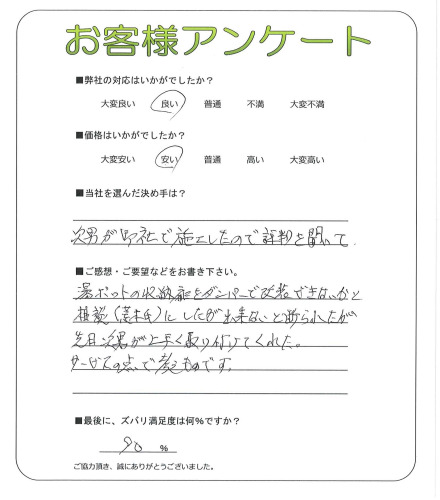 お客様アンケート
■弊社の対応はいかがでしたか？
大変良い 良い 普通 不満 大変不満
■価格はいかがでしたか？
大変安い 安い 普通 高い 大変高い
■当社を選んだ決め手は？
次男が御社で施工したので評判を聞いて.
■ご感想・ご要望などをお書き下さい。
湯ポットの収納庫をダンパーで改装できないかと
相談()にしたが出来ないと断られたが
先日次男が上手く取り付けてくれた。
サービスの点で考えものです。
■最後に、ズバリ満足度は何％ですか？
90 ％
ご協力頂き、誠にありがとうございました。